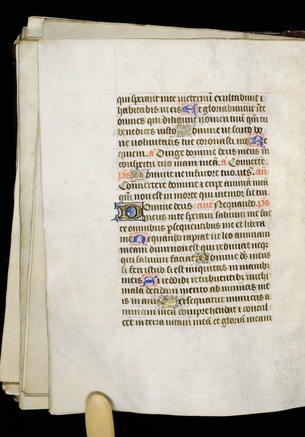 qui sperant in te in eternū exultabunt et
habitabis in eis Et gloriabuntur in te
omnes qui diligunt nomen tuū qm tu
benedices iusto Domine ut scuto bo
ne voluntatis tue coronasti nos Re
quiem. a Dirige domine deus meus in
conspectu tuo uiam meā. a Conuerte.
ps Domine ne in furore tuo. ut s. an
Conuertere domine et eripe animā meā
qm non est in morte qui memor sit tui.
Domine deus ant Nequando. ps
meus in te speraui saluum me fac
ex omnibus persequentibus me et libera
me Nequando rapiat ut leo animam
meam dum non est qui redimat neqz
qui saluum faciat Domine deus meus
si feci istud si est iniquitas in manibz
meis Si reddidi retribuentibz michi
mala decidam merito ab inimicis me
is inanis Persequatur inimicus a
nimam meā comprehendat et concul
cet in terra uitam meā et gloriā meam